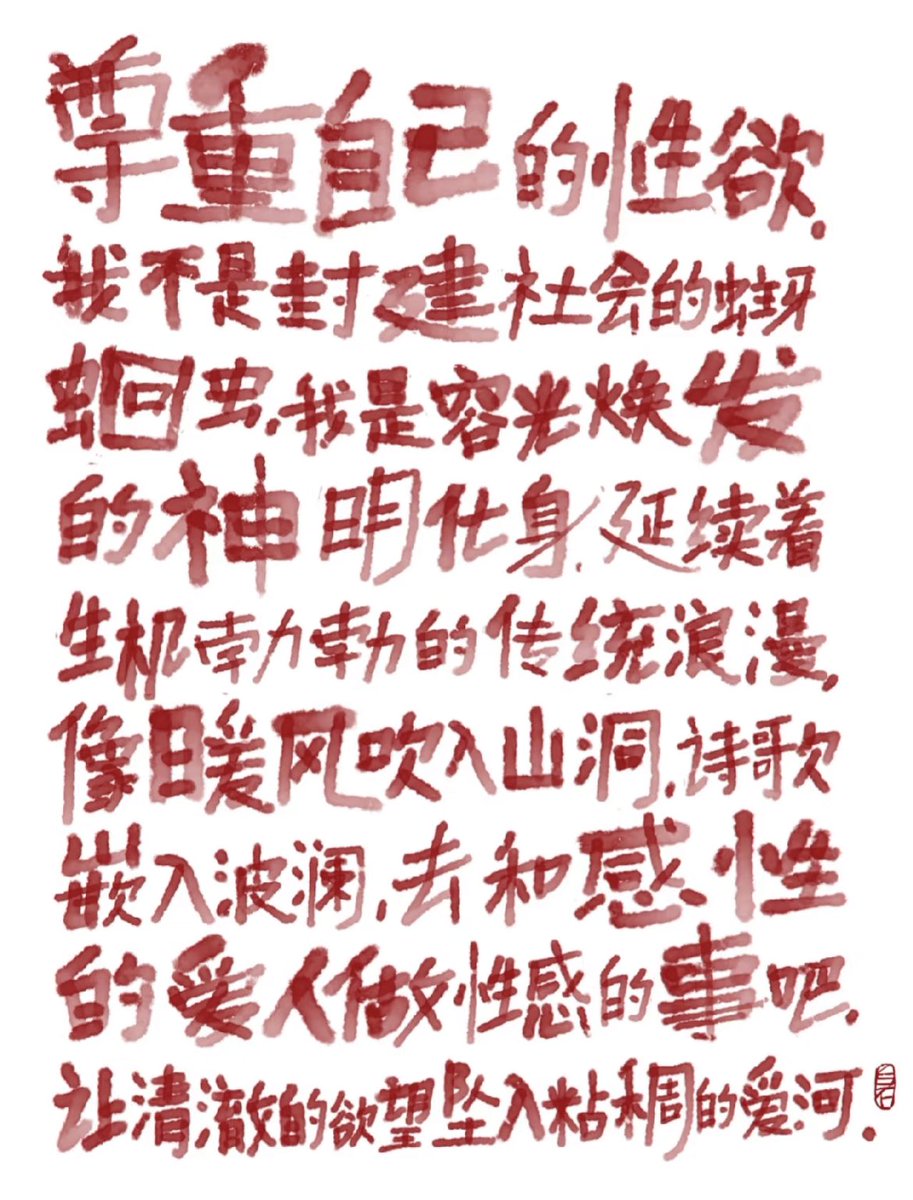 尊重自己的性欲.
我不是封建社会的蚜
蛔虫,我是容光焕发
的神明化身.延续着
生机勃勃的传统浪漫,
像日暖风吹入山洞.诗歌
嵌入波澜,去和感性
的爱人做性感的事吧.
让清澈的欲望坠入粘稠的爱河.